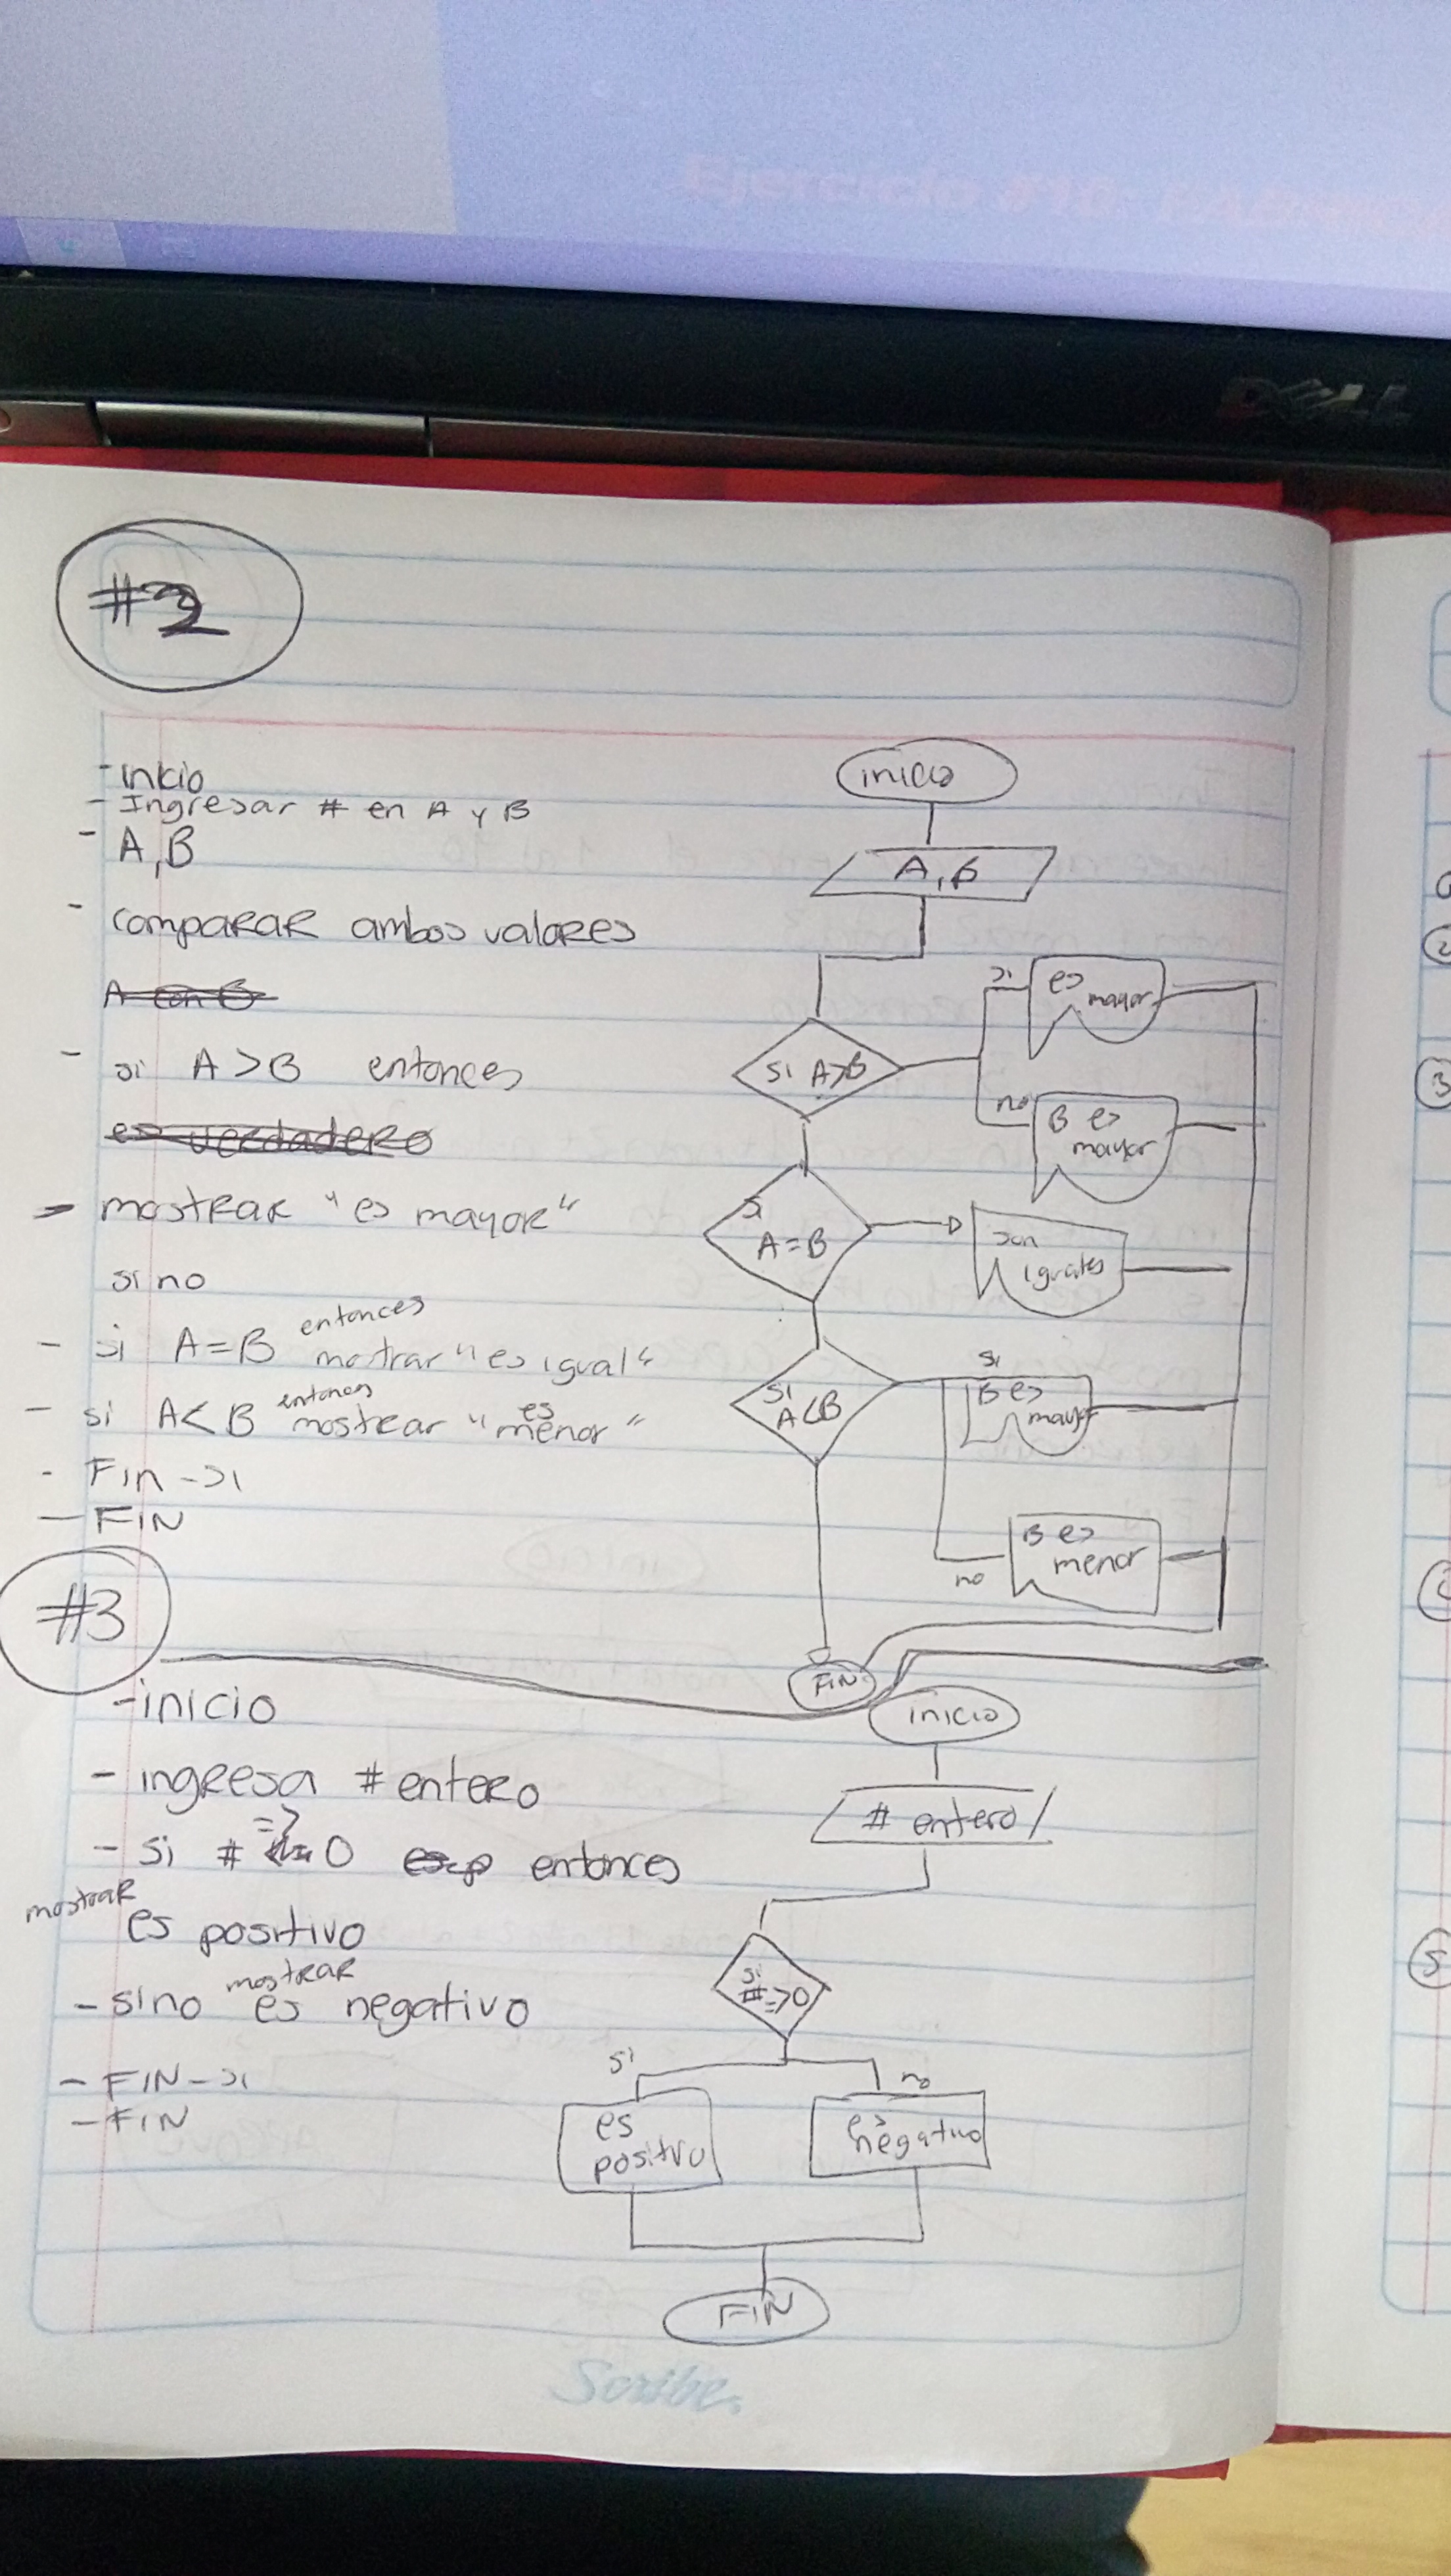 Ejercicio #10:
DELL
#2
- Inicio
- Ingresar # en A y B
- A, B
- comparar ambos valores
A con B
- si A > B entonces
es verdadero
- mostrar "es mayor"
si no
- si A = B entonces mostrar "es igual"
- si A < B entonces mostrar "es menor"
- Fin - si
- FIN
inicio
A, B
si A>B
si
es mayor
no
B es mayor
si A=B
son iguales
si A<B
si
B es mayor
no
B es menor
FIN
#3
- inicio
- ingresa # entero
- si # => 0 entonces
mostrar es positivo
- sino mostrar es negativo
- FIN - si
- FIN
inicio
# entero
si # => 0
si
no
es positivo
es negativo
FIN
Scribe
2
3
5